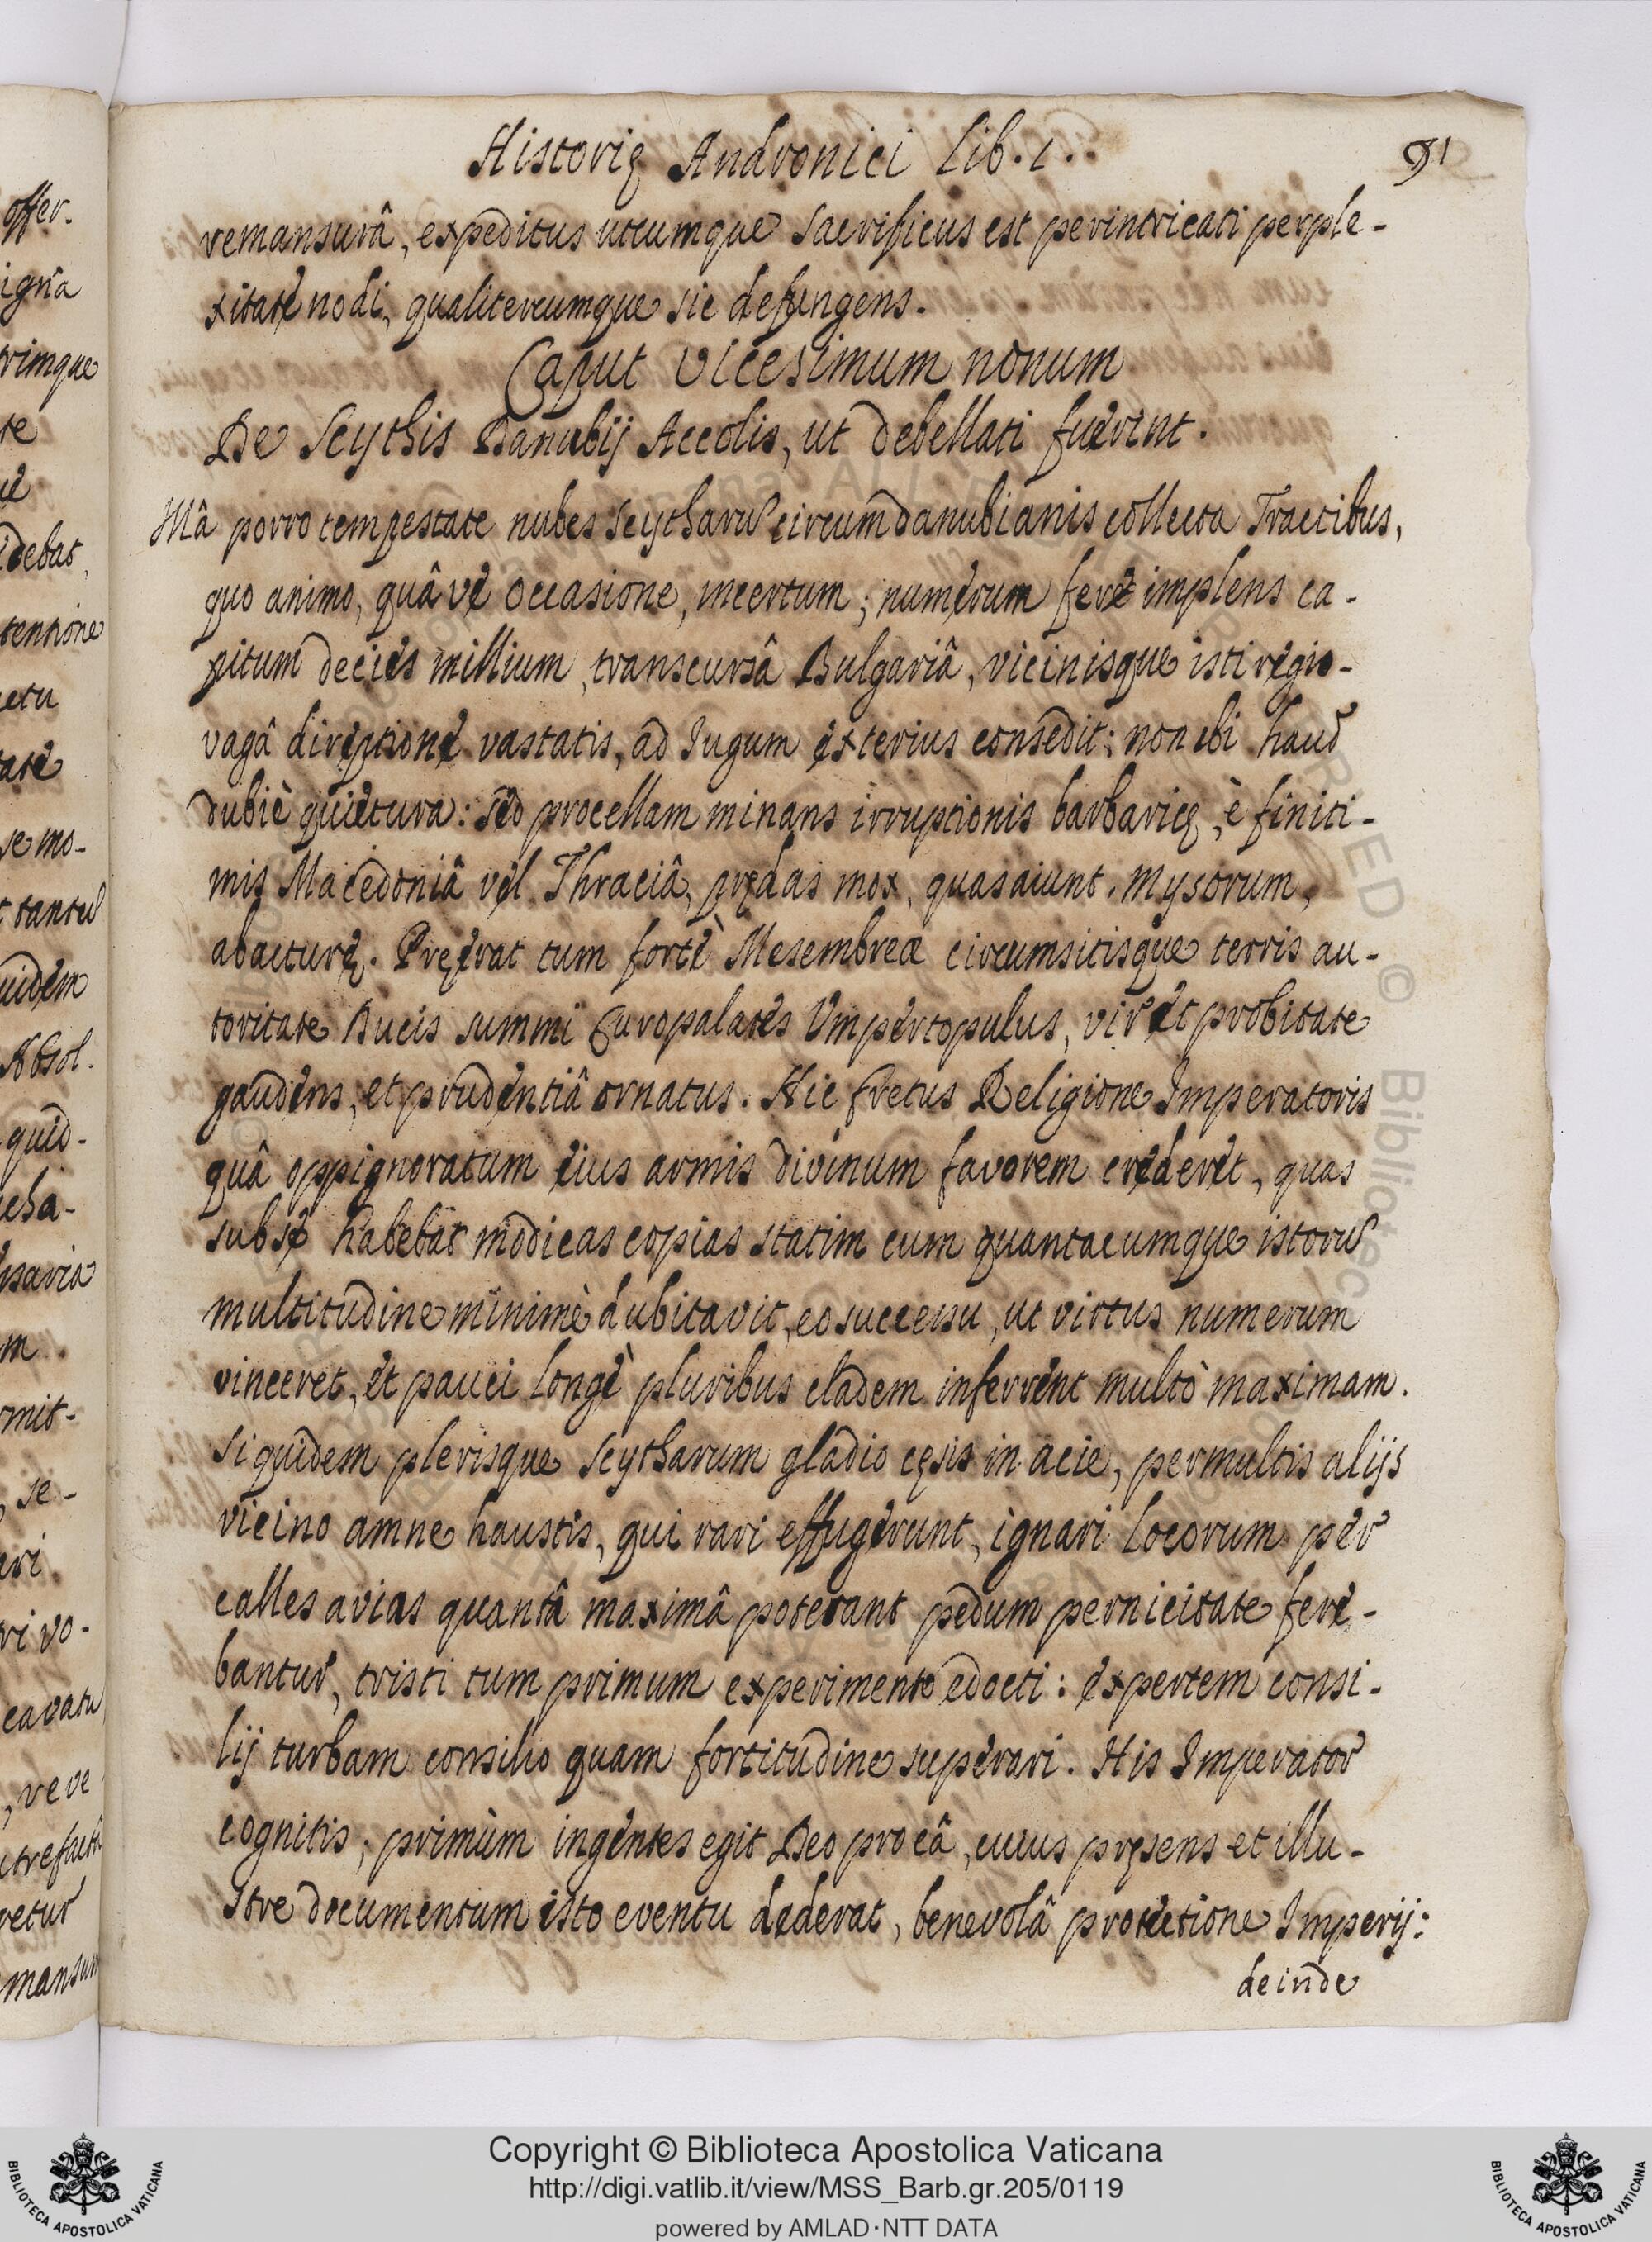 Historię Andronici Lib. 1.
91
remansurâ, expeditus utcumque sacrificus est perintricati perple-
xitate nodi, qualitercumque sic defungens.
Caput vicesimum nonum
De Scythis Danubij Accolis, ut debellati fuerint.
Illâ porro tempestate nubes Scytharū circumdanubianis collecta Tractibus,
quo animo, quâ vè occasione, incertum; numerum ferè implens ca-
pitum decies millium, transcursâ Bulgariâ, vicinisque isti regio-
vagâ direptione vastatis, ad Jugum exterius consedit; non ibi haud
dubiè quietura: sed procellam minans irruptionis barbaricę, è finiti-
mis Macedoniâ vel Thraciâ, prędas mox, quas aiunt, Mysorum,
abacturę. Pręerat tum fortè Mesembreæ circumsitisque terris au-
toritate Ducis summi Curopalates Umpertopulus, vir et probitate
gaudens, et prudentiâ ornatus. Hic fretus Religione Imperatoris
quâ oppignoratum eius armis divinum favorem crederet, quas
sub se habebat modicas copias statim cum quantacumque istorū
multitudine minimè dubitavit, eo successu, ut virtus numerum
vinceret, et pauci longè pluribus cladem inferrent multò maximam.
siquidem plerisque Scytharum gladio cęsis in acie, permultis alijs
vicino amne haustis, qui rari effugerunt, ignari locorum per
calles avias quantâ maximâ poterant pedum pernicitate fere-
bantur, tristi tum primum experimento edocti: expertem consi-
lij turbam consilio quam fortitudine superari. His Imperator
cognitis; primùm ingentes egit Deo pro eâ, cuius pręsens et illu-
stre documentum isto eventu dederat, benevolâ protectione Imperij:
deinde
Copyright © Biblioteca Apostolica Vaticana
http://digi.vatlib.it/view/MSS_Barb.gr.205/0119
powered by AMLAD·NTT DATA
BIBLIOTECA APOSTOLICA VATICANA
BIBLIOTECA APOSTOLICA VATICANA